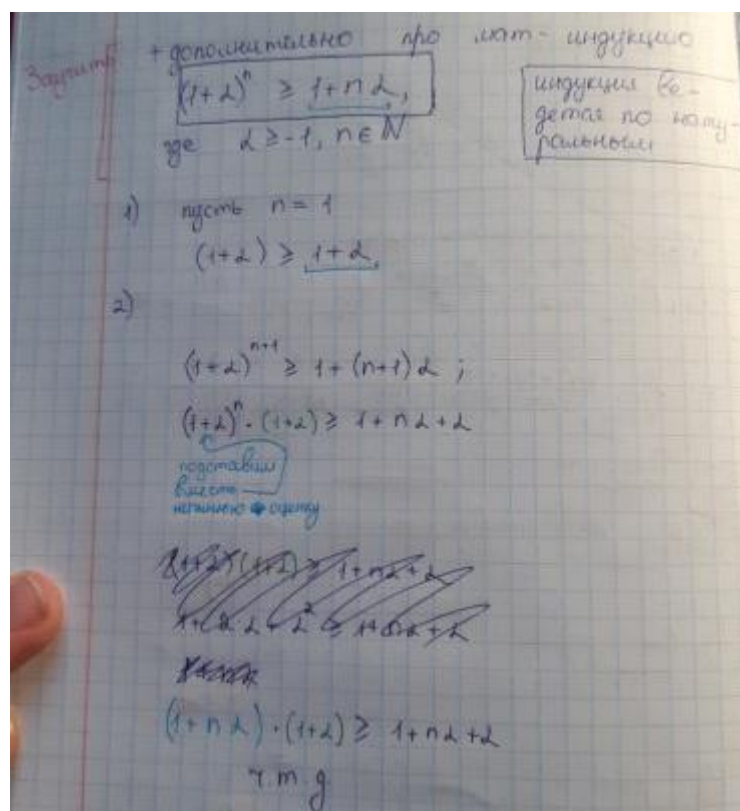 Заучить
+ дополнительно про мат-индукцию
(1+α)ⁿ ≥ 1+nα,
где α ≥ -1, n ∈ N
индукция ве-
дется по нату-
ральным
1) пусть n = 1
(1+α) ≥ 1+α,
2)
(1+α)ⁿ⁺¹ ≥ 1+(n+1)α ;
(1+α)ⁿ · (1+α) ≥ 1+nα+α
подставим
вместо
оценку
(1+nα) · (1+α) ≥ 1+nα+α
ч.т.д